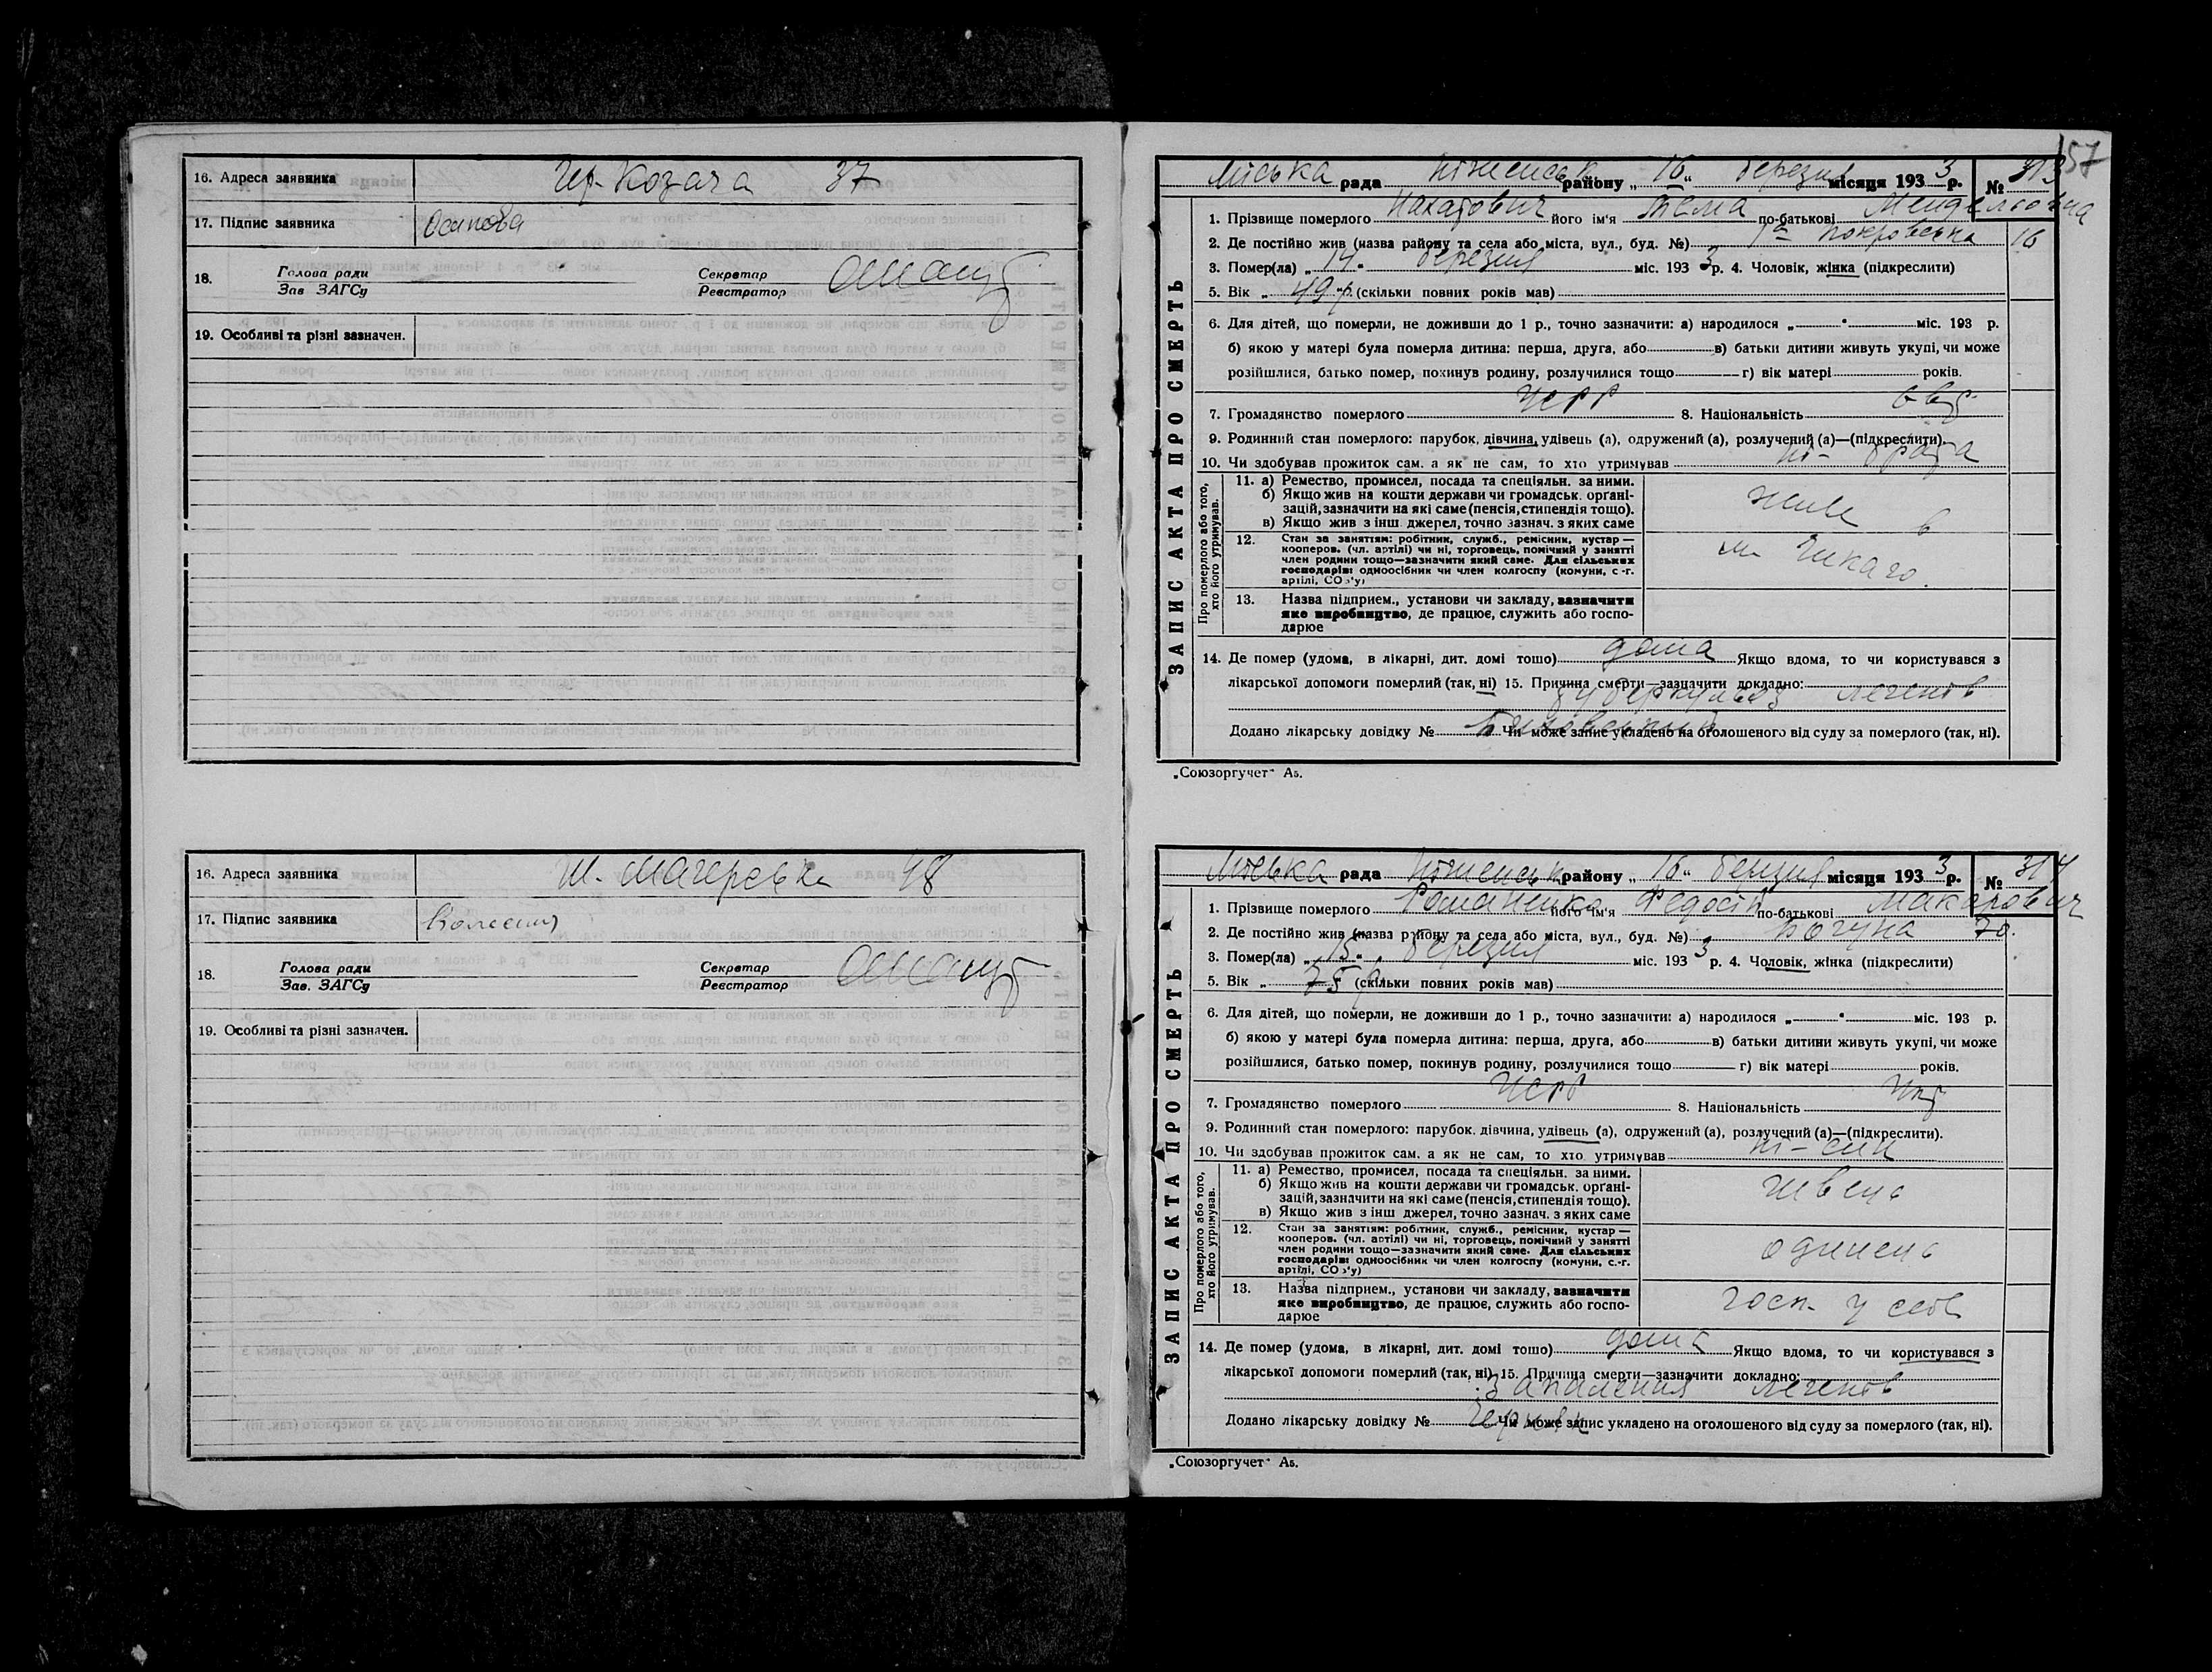 16. Адреса заявника Чер-Козача 37
17. Підпис заявника Осипова
18. Голова ради Секретар
Зав ЗАГСу Реєстратор
19. Особливі та різні зазначен.
16. Адреса заявника Ш. Магерська 48
17. Підпис заявника
18. Голова ради Секретар
Зав. ЗАГСу Реєстратор
19. Особливі та різні зазначен.
157
ЗАПИС АКТА ПРО СМЕРТЬ
Міська рада Ніженськ району „16“ березня місяця 1933 р. № 313
1. Прізвище померлого його ім'я по-батькові Мендельовна
2. Де постійно жив (назва району та села або міста, вул., буд. №) 1а Покровська 16
3. Помер(ла) „14“ березня міс. 1933 р. 4. Чоловік, жінка (підкреслити)
5. Вік „49 р. (скільки повних років мав)
6. Для дітей, що померли, не доживши до 1 р., точно зазначити: а) народилося „ “ міс. 193 р.
б) якою у матері була померла дитина: перша, друга, або в) батьки дитини живуть укупі, чи може
розійшлися, батько помер, покинув родину, розлучилися тощо г) вік матері років.
7. Громадянство померлого УСРР 8. Національність євр.
9. Родинний стан померлого: парубок, дівчина, удівець (а), одружений (а), розлучений (а)—(підкреслити).
10. Чи здобував прожиток сам, а як не сам, то хто утримував ні - брата
Про померлого або того, хто його утримував.
11. а) Ремество, промисел, посада та спеціяльн. за ними.
б) Якщо жив на кошти держави чи громадськ. орґані-
зацій, зазначити на які саме (пенсія, стипендія тощо).
в) Якщо жив з інш джерел, точно зазнач. з яких саме
живе в
12. Стан за занятіям: робітник, служб., ремісник, кустар—
кооперов. (чл. артілі) чи ні, торговець, помічний у занятті
член родини тощо—зазначити який саме. Для сільських
господарів: одноосібник чи член колгоспу (комуни, с-г.
артілі, СОз'у)
м. Чикаго.
13. Назва підприєм., установи чи закладу, зазначити
яке виробництво, де працює, служить або госпо-
дарює
14. Де помер (удома, в лікарні, дит. домі тощо) дома Якщо вдома, то чи користувався з
лікарської допомоги померлий (так, ні) 15. Причина смерти—зазначити докладно:
туберкульоз легенів
Додано лікарську довідку № Чи може запис укладено на оголошеного від суду за померлого (так, ні).
„Союзоргучет“ А5.
ЗАПИС АКТА ПРО СМЕРТЬ
Міська рада Ніженськ району „16“ березня місяця 1933 р. № 314
1. Прізвище померлого Романенко його ім'я Федосій по-батькові Макарович
2. Де постійно жив (назва району та села або міста, вул., буд. №) Богуна 70.
3. Помер(ла) „15“ березня міс. 1933 р. 4. Чоловік, жінка (підкреслити)
5. Вік „75 р. (скільки повних років мав)
6. Для дітей, що померли, не доживши до 1 р., точно зазначити: а) народилося „ “ міс. 193 р.
б) якою у матері була померла дитина: перша, друга, або в) батьки дитини живуть укупі, чи може
розійшлися, батько помер, покинув родину, розлучилися тощо г) вік матері років.
7. Громадянство померлого УСРР 8. Національність Укр
9. Родинний стан померлого: парубок, дівчина, удівець (а), одружений (а), розлучений (а)—(підкреслити).
10. Чи здобував прожиток сам, а як не сам, то хто утримував ні - син
Про померлого або того, хто його утримував.
11. а) Ремество, промисел, посада та спеціяльн. за ними.
б) Якщо жив на кошти держави чи громадськ. орґані-
зацій, зазначити на які саме (пенсія, стипендія тощо).
в) Якщо жив з інш джерел, точно зазнач. з яких саме
швець
12. Стан за занятіям: робітник, служб., ремісник, кустар—
кооперов. (чл. артілі) чи ні, торговець, помічний у занятті
член родини тощо—зазначити який саме. Для сільських
господарів: одноосібник чи член колгоспу (комуни, с.-г.
артілі, СОз'у)
одинець
13. Назва підприєм., установи чи закладу, зазначити
яке виробництво, де працює, служить або госпо-
дарює
госп. у себе
14. Де помер (удома, в лікарні, дит. домі тощо) дома Якщо вдома, то чи користувався з
лікарської допомоги померлий (так, ні) 15. Причина смерти—зазначити докладно:
запалення легенів
Додано лікарську довідку № Чи може запис укладено на оголошеного від суду за померлого (так, ні).
„Союзоргучет“ А5.